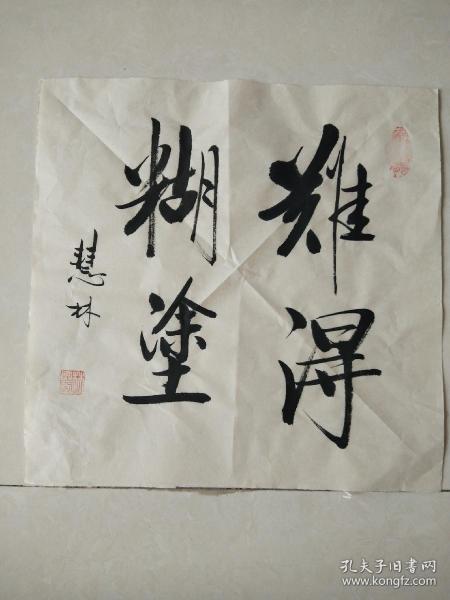 難得
糊塗
慧林
孔夫子旧书网
www.kongfz.com